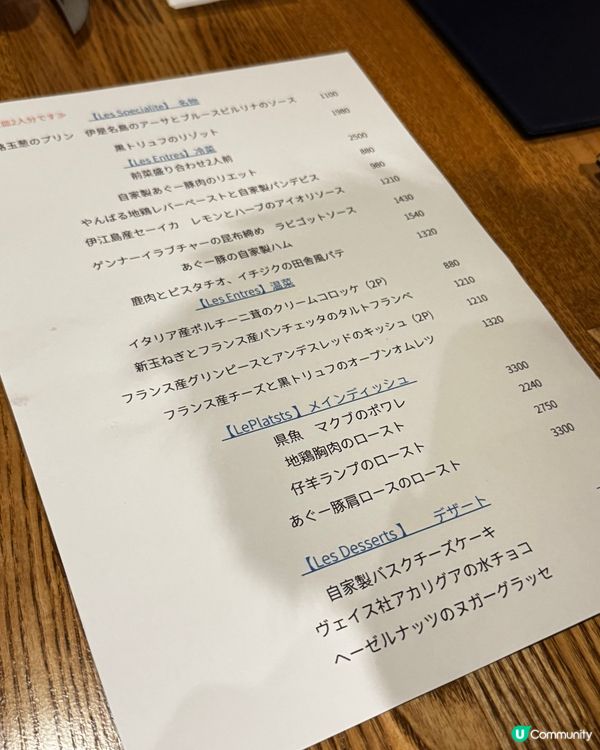 面2人分です≫
【Les Specialite】 名物
玉葱のプリン 伊是名島のアーサとブルースピルリナのソース 1100
黒トリュフのリゾット 1980
【Les Entres】冷菜
前菜盛り合わせ2人前 2500
自家製あぐー豚肉のリエット 880
やんばる地鶏レバーペーストと自家製パンデピス 980
伊江島産セーイカ レモンとハーブのアイオリソース 1210
ゲンナーイラブチャーの昆布締め ラビゴットソース 1430
あぐー豚の自家製ハム 1540
鹿肉とピスタチオ、イチジクの田舎風パテ 1320
【Les Entres】温菜
イタリア産ポルチーニ茸のクリームコロッケ（2P） 880
新玉ねぎとフランス産パンチェッタのタルトフランベ 1210
フランス産グリンピースとアンデスレッドのキッシュ（2P） 1210
フランス産チーズと黒トリュフのオープンオムレツ 1320
【LePlatsts】メインディッシュ
県魚 マクブのポワレ 3300
地鶏胸肉のロースト 2240
仔羊ランプのロースト 2750
あぐー豚肩ロースのロースト 3300
【Les Desserts】 デザート
自家製バスクチーズケーキ
ヴェイス社アカリグアの水チョコ
ヘーゼルナッツのヌガーグラッセ
U Community